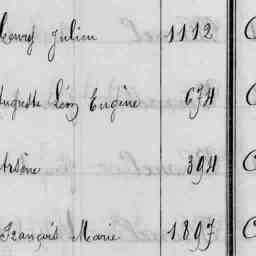 Henry Julien 1112
Auguste Léon Eugène 674
Arsène 394
François Marie 1897